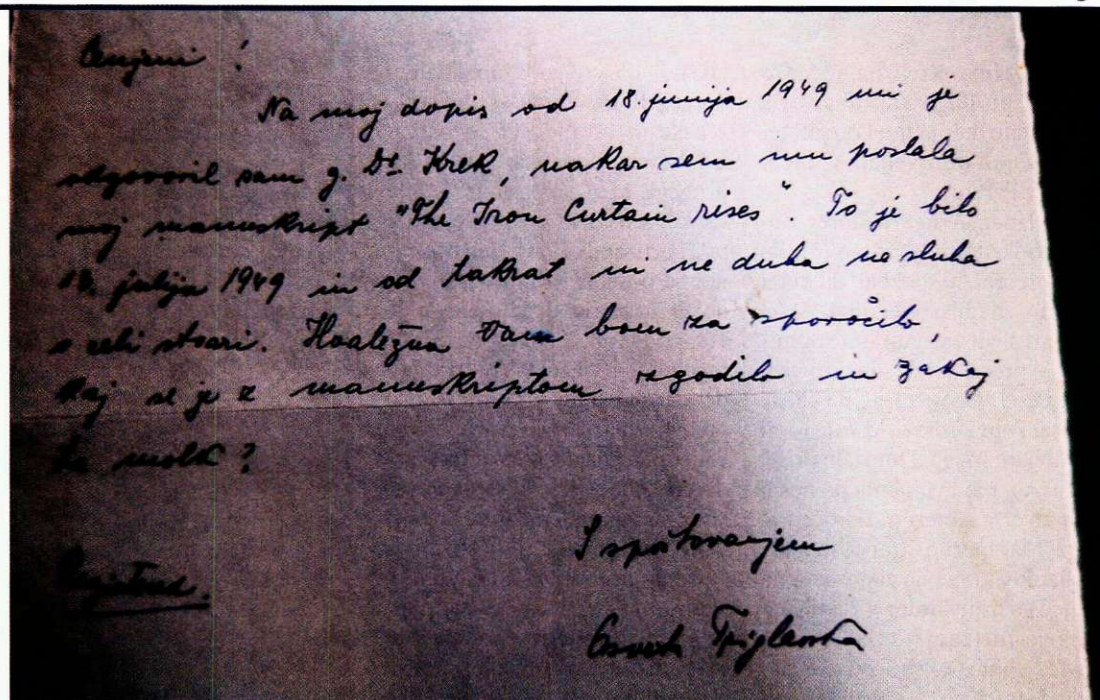 Cenjeni !
Na moj dopis od 18. junija 1949 mi je
odgovoril sam g. Dr. Krek, nakar sem mu poslala
moj manuskript "The Iron Curtain rises". To je bilo
18. julija 1949 in od takrat ni ne duha ne sluha
o celi stvari. Hvaležna Vam bom za sporočilo,
kaj se je z manuskriptom zgodilo in zakaj
ta molk?
S spoštovanjem
Triglavska